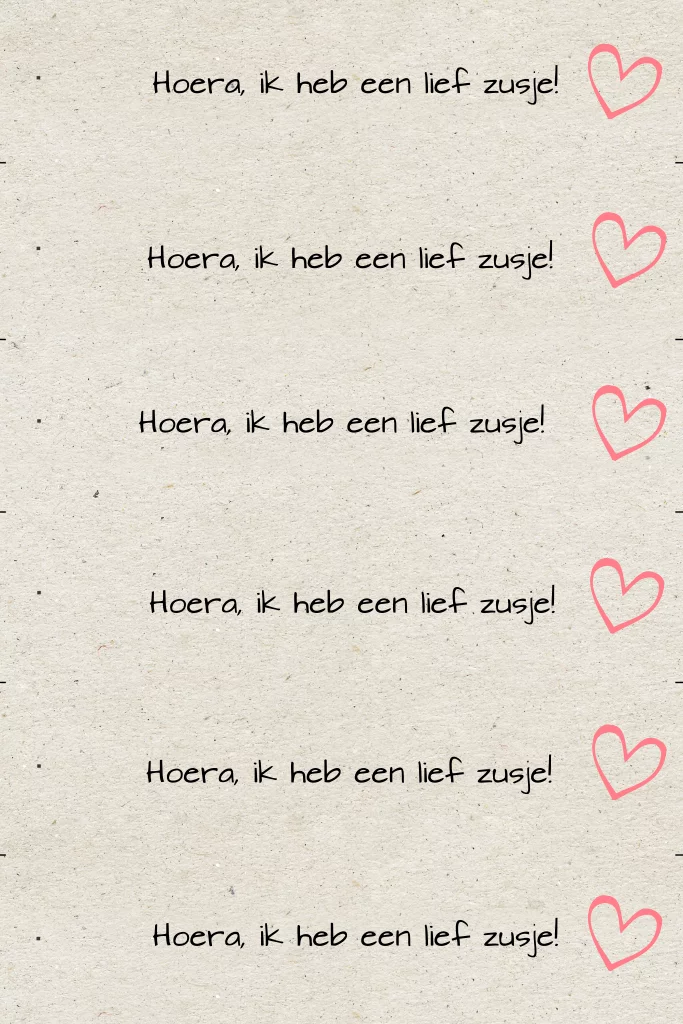 Hoera, ik heb een lief zusje!
Hoera, ik heb een lief zusje!
Hoera, ik heb een lief zusje!
Hoera, ik heb een lief zusje!
Hoera, ik heb een lief zusje!
Hoera, ik heb een lief zusje!